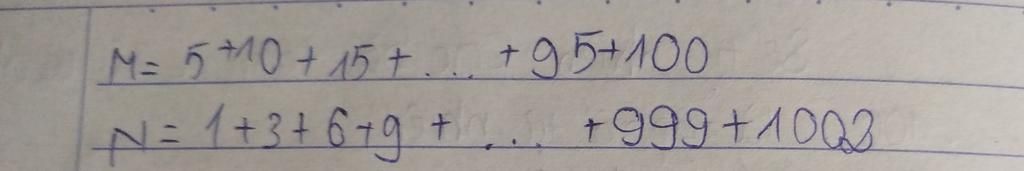 M= 5+10 + 15 + ... + 95+100
N = 1+3+6+9 + ... +999+1002